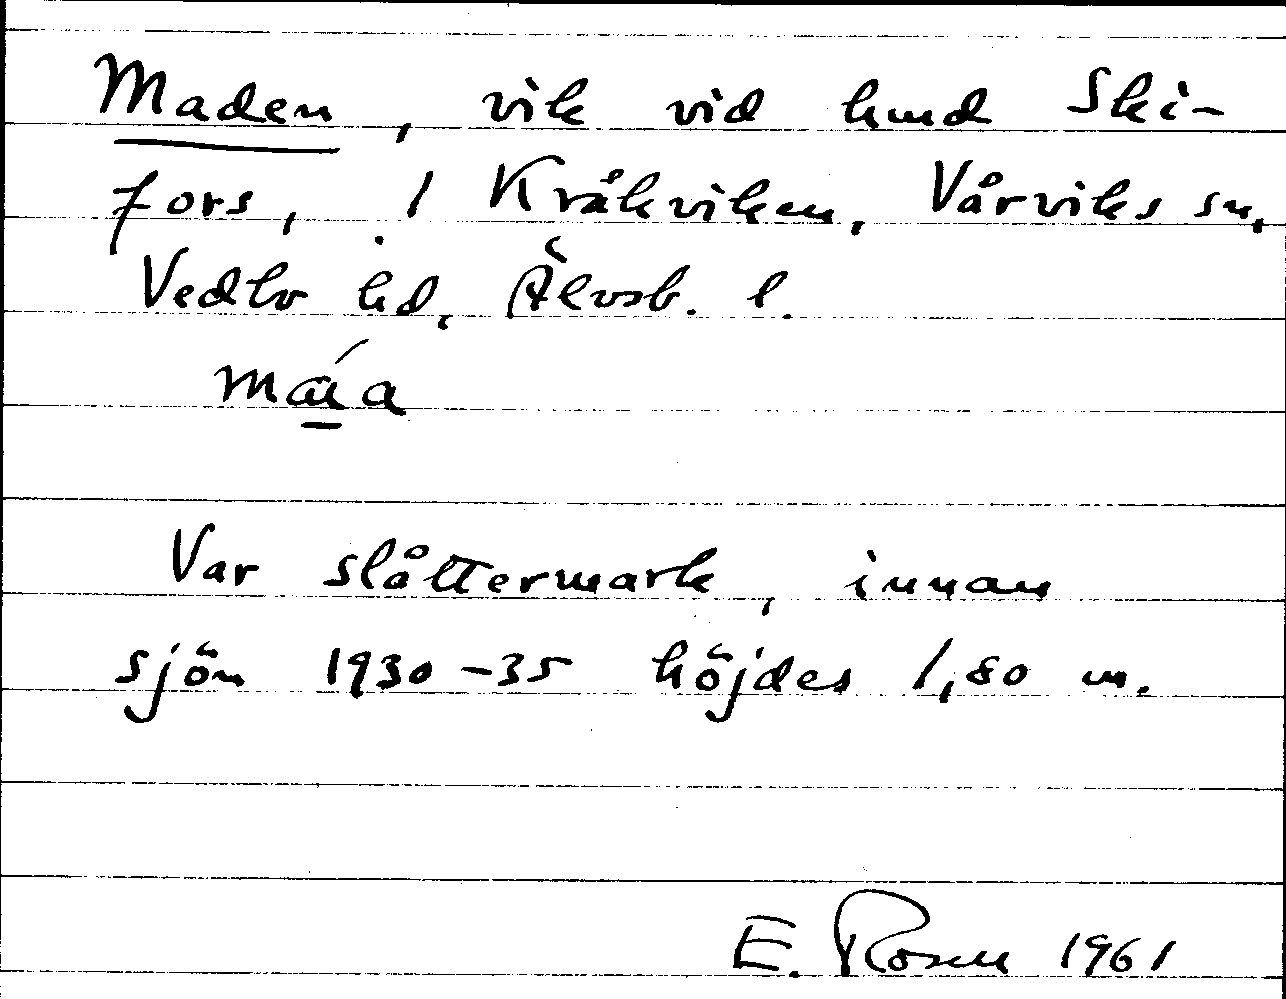 Maden, vik vid hmd Ski-
fors, 1 Kråkviken, Vårviks sn,
Vedbo hd, Älvsb. l.
Var slåttermark, innan
sjön 1930-35 höjdes 1,80 m.
E. Rosell 1961